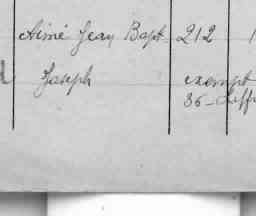 Aimé Jean Bapt. 212 1
Joseph exempt
36